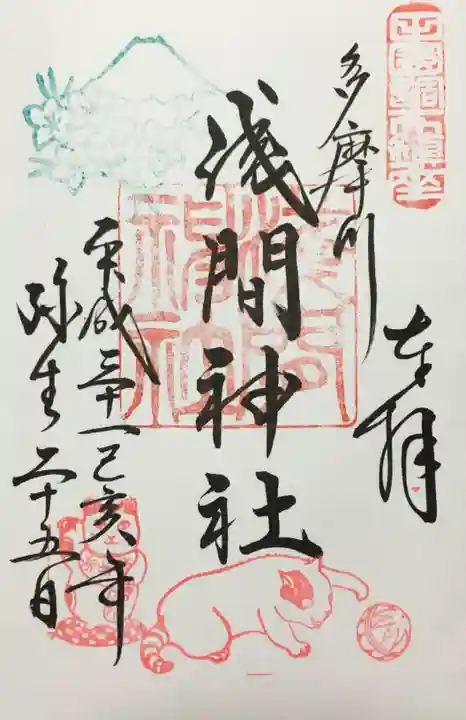 奉拝
多摩川
浅間神社
平成三十一己亥年
弥生二十五日
浅間神社